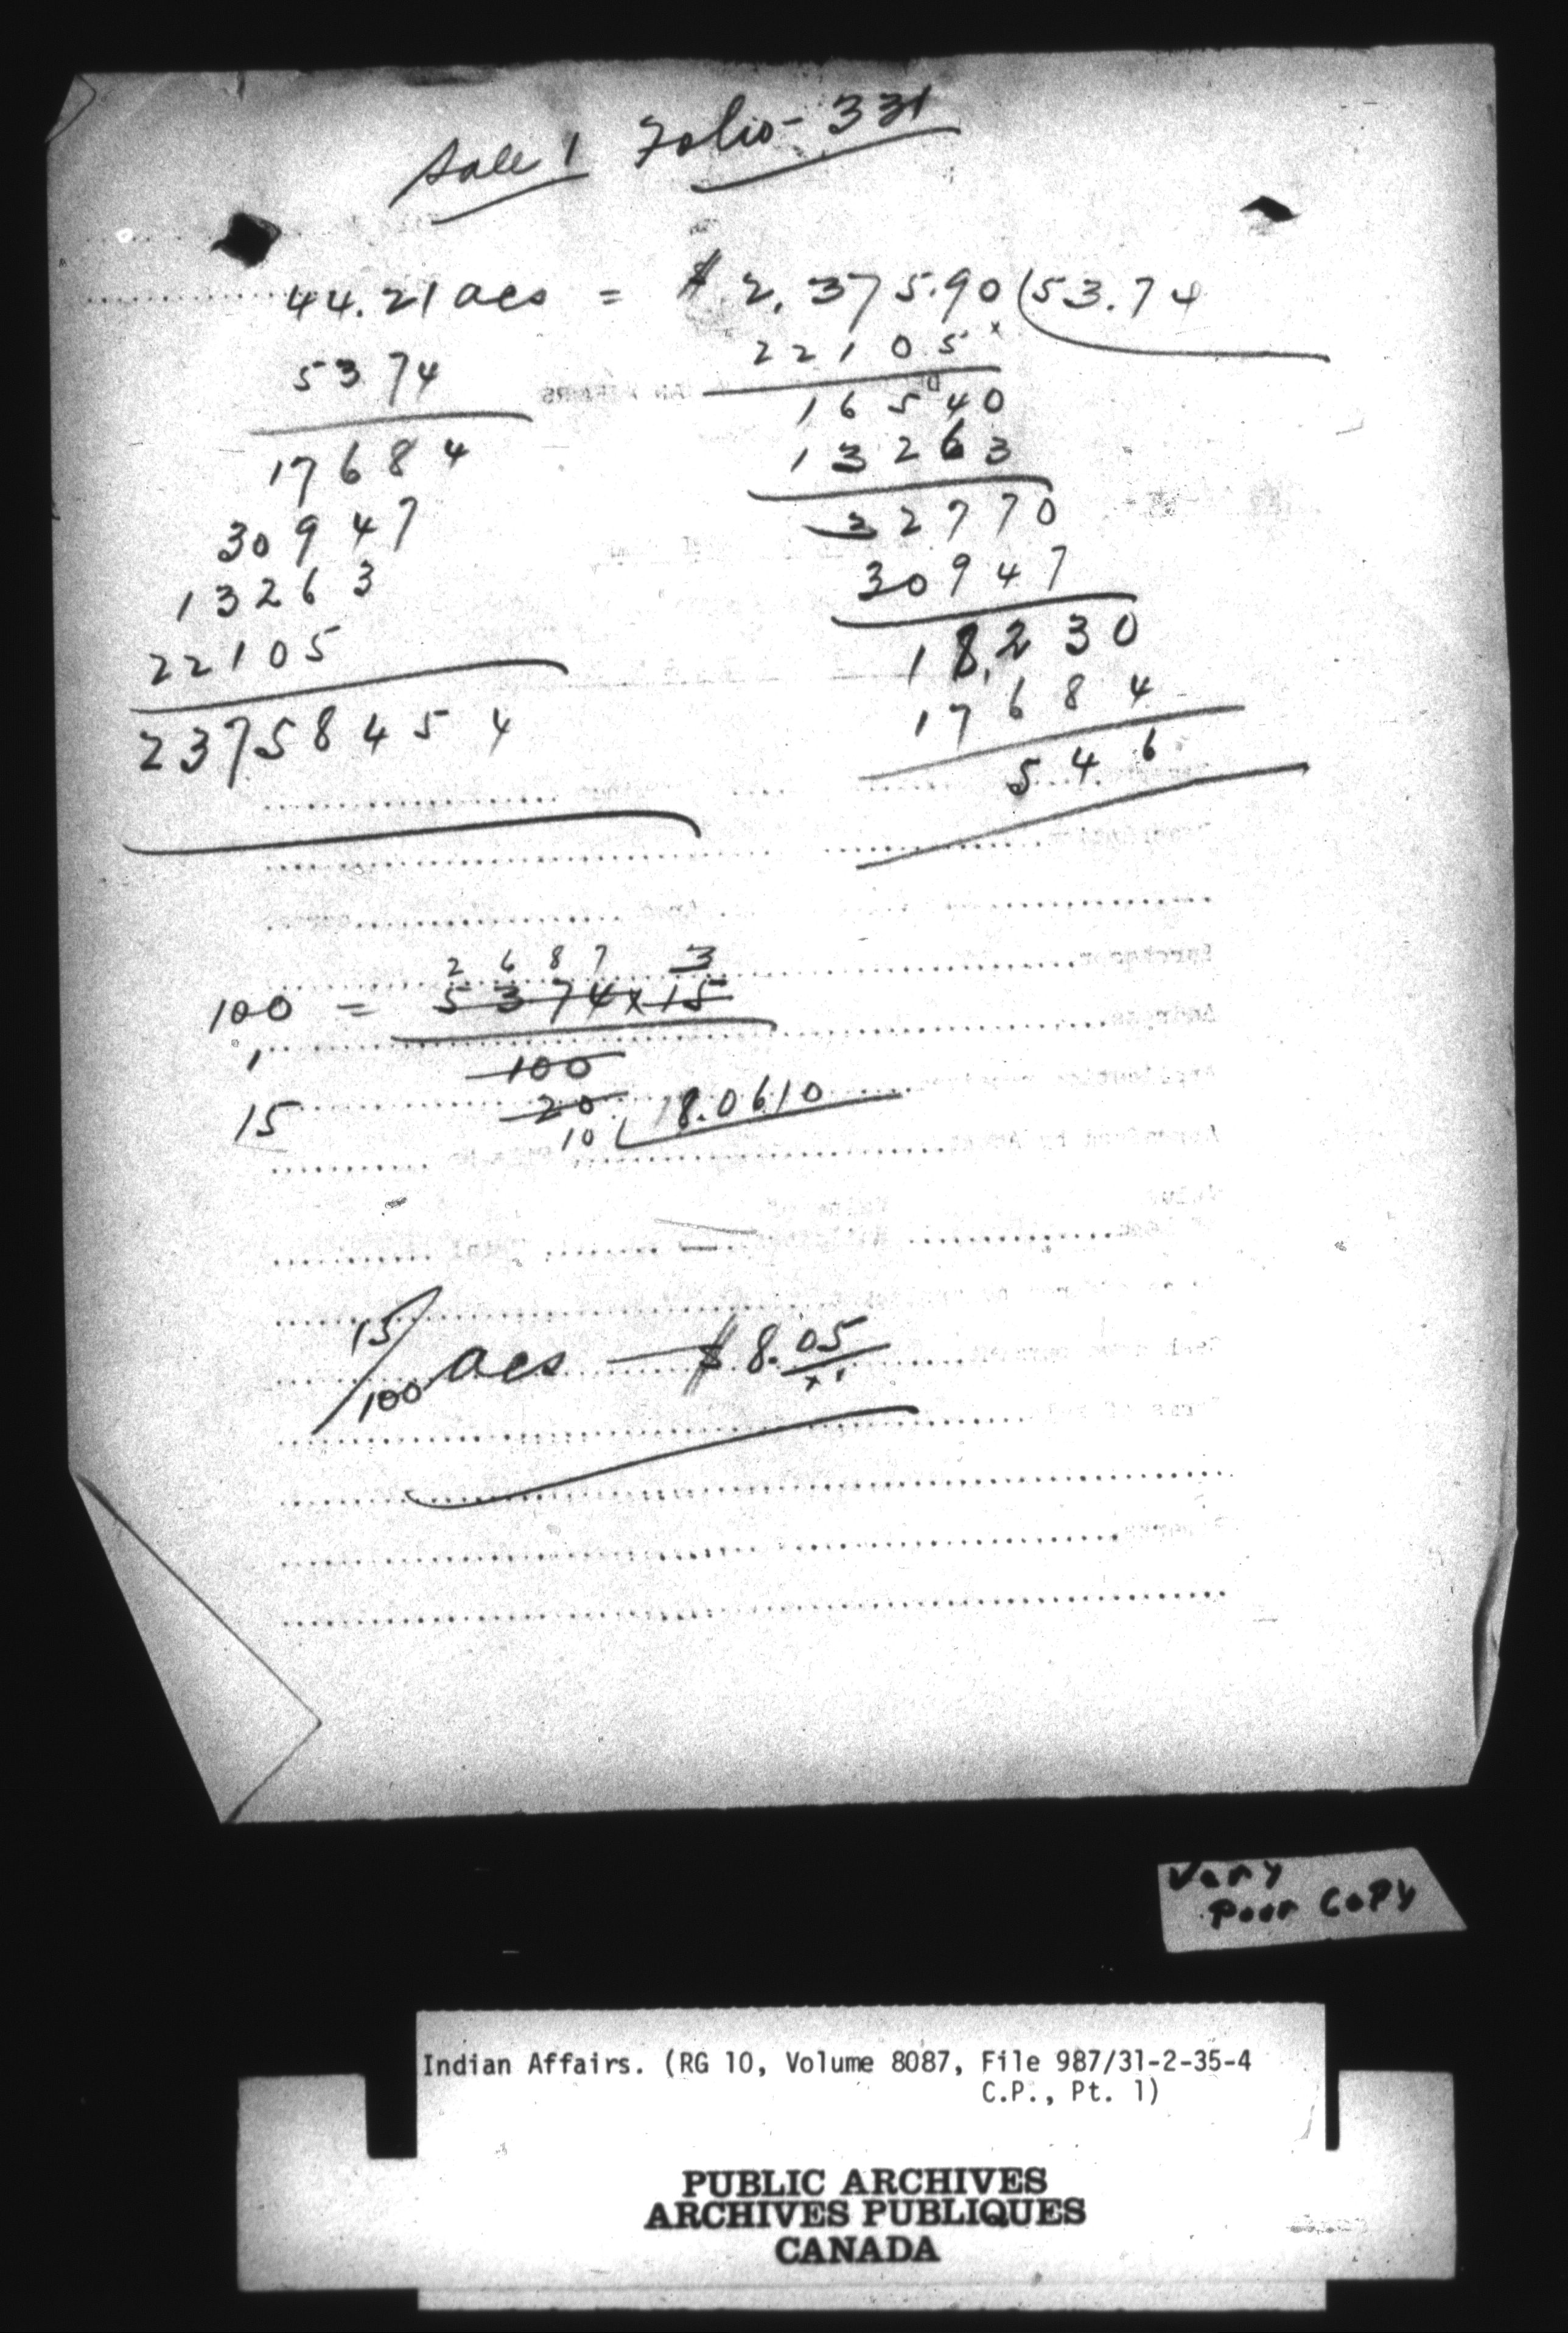 Sale 1 Folio - 331
44.21 acs = $ 2,375.90 (53.74
5374
17684
30947
13263
22105
23758454
22105 x
16540
13263
32770
30947
18,230
17684
546
2 6 8 7 3
100 = 5374 x 15
1
100
15
20
10 8.0610
15/100 acs — $ 8.05
Very
Poor Copy
Indian Affairs. (RG 10, Volume 8087, File 987/31-2-35-4
C.P., Pt. 1)
PUBLIC ARCHIVES
ARCHIVES PUBLIQUES
CANADA